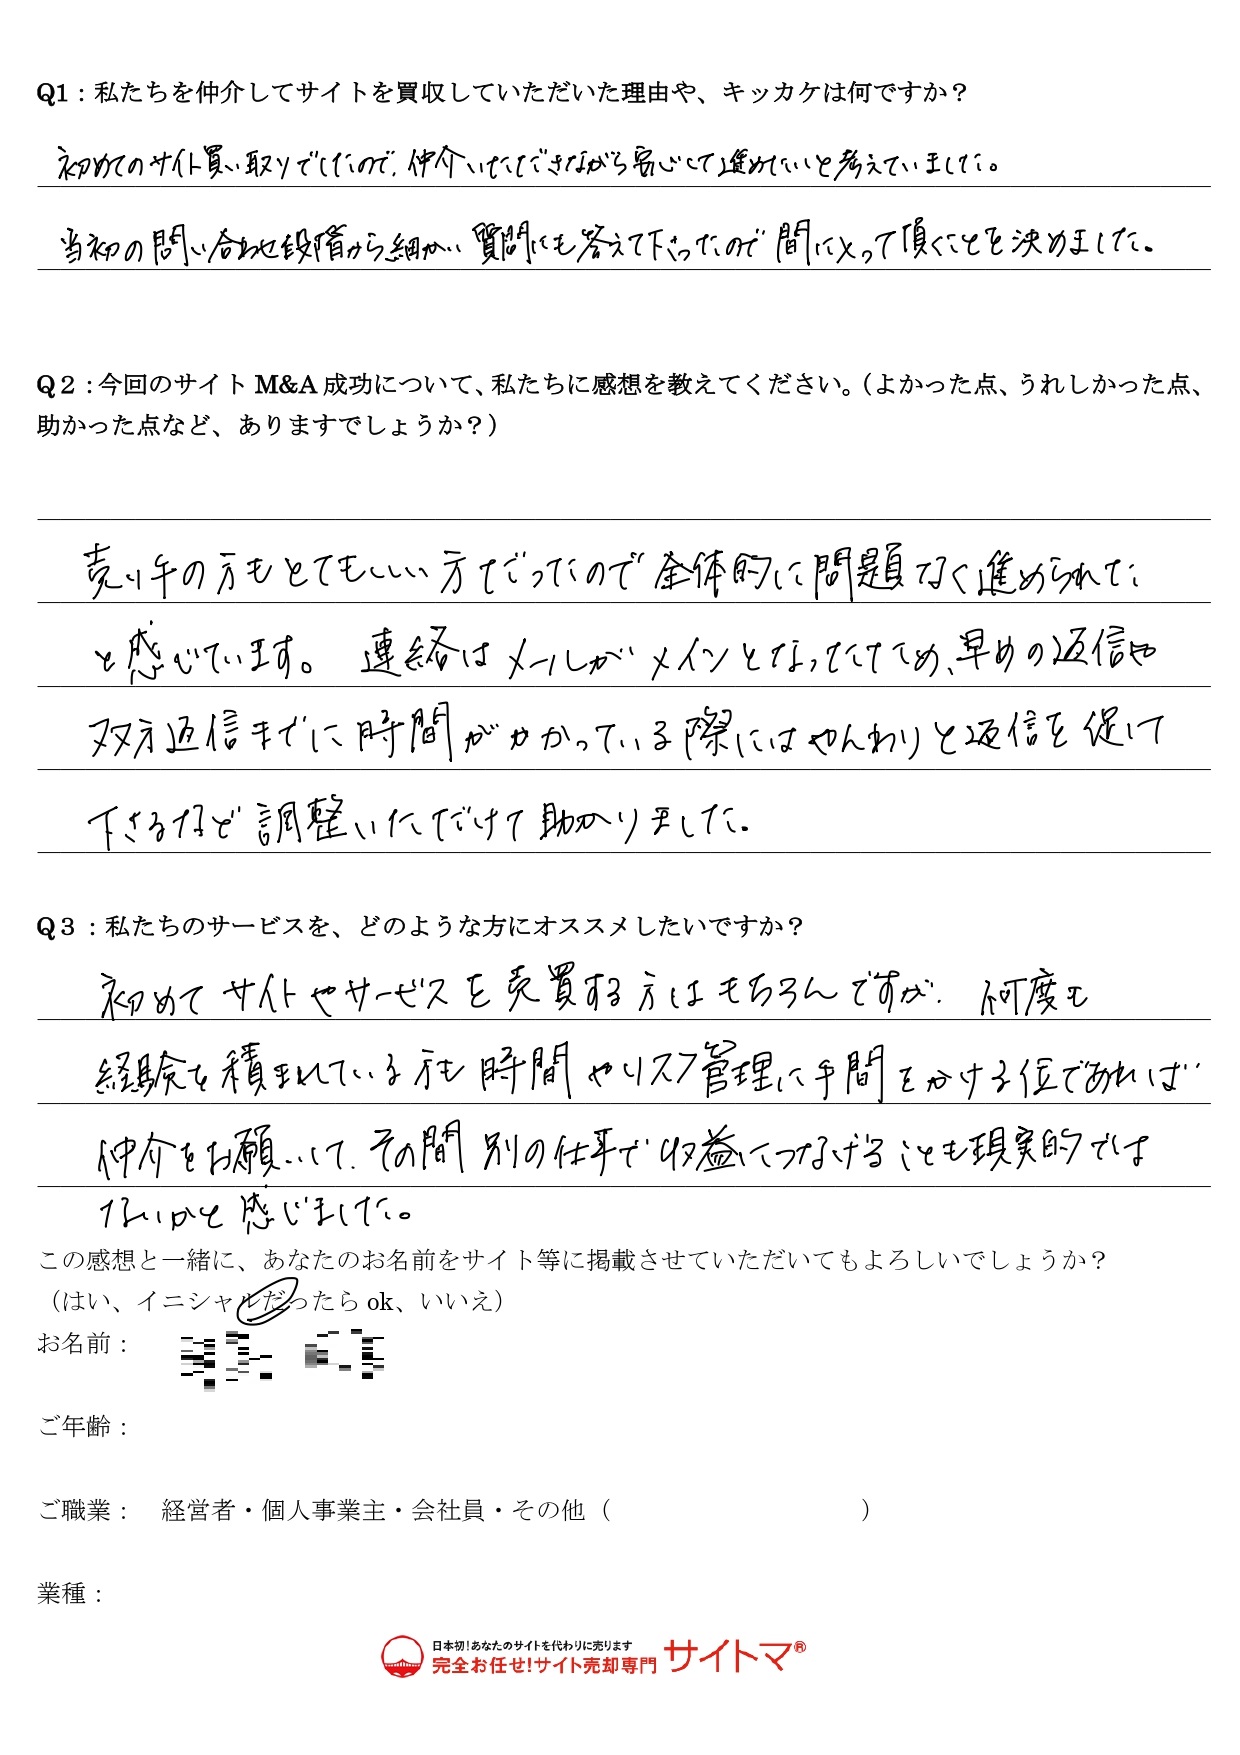 Q1：私たちを仲介してサイトを買収していただいた理由や、キッカケは何ですか？
初めてのサイト買い取りでしたので、仲介いただきながら安心して進めたいと考えていました。
当初の問い合わせ段階から細かい質問にも答えて下さったので間に入って頂くことを決めました。
Q２：今回のサイト M&A 成功について、私たちに感想を教えてください。（よかった点、うれしかった点、
助かった点など、ありますでしょうか？）
売り手の方もとてもいい方だったので全体的に問題なく進められた
と感じています。 連絡はメールがメインとなってたため、早めの返信や
双方返信までに時間がかかっている際にはやんわりと返信を促して
下さるなど調整いただけて助かりました。
Q３：私たちのサービスを、どのような方にオススメしたいですか？
初めてサイトやサービスを売買する方はもちろんですが、何度も
経験を積まれている方も時間やリスク管理に手間をかける位であれば
仲介をお願いして、その間別の仕事で収益につなげることも現実的では
ないかと感じました。
この感想と一緒に、あなたのお名前をサイト等に掲載させていただいてもよろしいでしょうか？
（はい、イニシャルだったら ok、いいえ）
お名前：
ご年齢：
ご職業： 経営者・個人事業主・会社員・その他（ ）
業種：
日本初！あなたのサイトを代わりに売ります
完全お任せ！サイト売却専門 サイトマ®